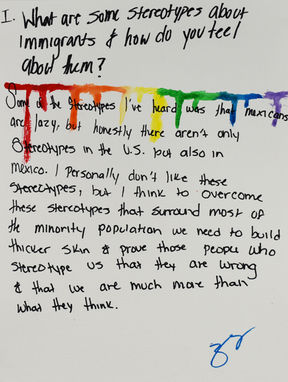 I. What are some stereotypes about
immigrants & how do you feel
about them?
Some of the stereotypes I've heard was that mexicans
are lazy, but honestly there aren't only
Stereotypes in the U.S. but also in
Mexico. I personally don't like these
stereotypes, but I think to overcome
these stereotypes that surround most of
the minority population we need to build
thicker skin & prove those people who
stereotype us that they are wrong
& that we are much more than
what they think.